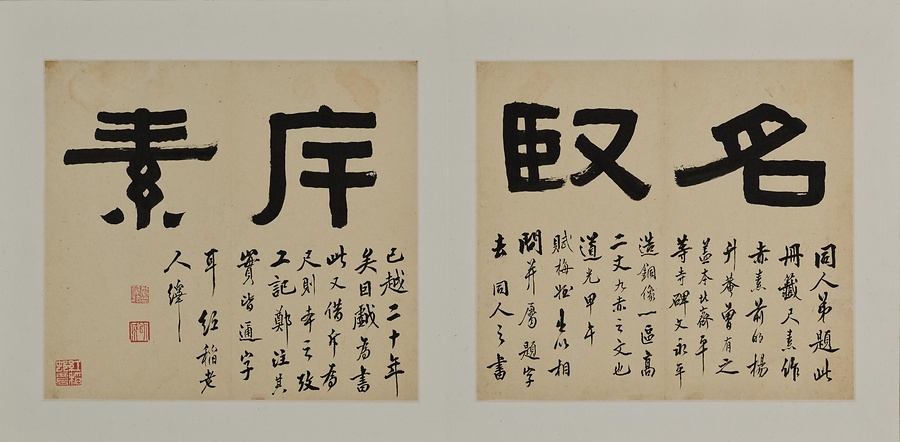 名臤
斥素
同人弟題此
冊籤尺素作
赤素前明楊
升菴曾有之
蓋本北齊平
等寺碑文永平
造銅像一區高
二丈九赤之文也
道光甲午
賦梅姪出以相
問并屬題字
去同人之書
已越二十年
矣因戲為書
此又借斥為
尺則本之攷
工記鄭注其
實皆通字
耳 紅稻老
人